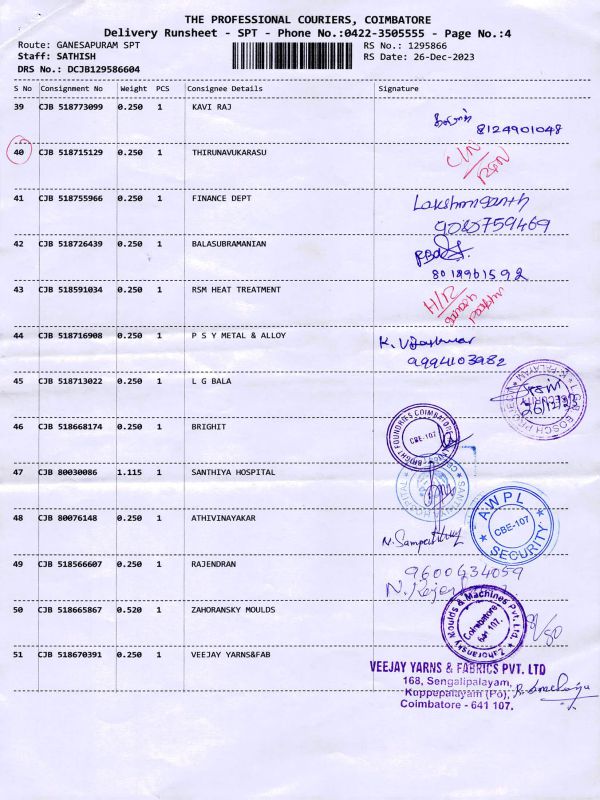 THE PROFESSIONAL COURIERS, COIMBATORE
Delivery Runsheet - SPT - Phone No.:0422-3505555 - Page No.:4
Route: GANESAPURAM SPT
RS No.: 1295866
Staff: SATHISH
RS Date: 26-Dec-2023
DRS No.: DCJB129586604
S No Consignment No Weight PCS Consignee Details Signature
39 CJB 518773099 0.250 1 KAVI RAJ
8124901048
40 CJB 518715129 0.250 1 THIRUNAVUKARASU
41 CJB 518755966 0.250 1 FINANCE DEPT
Lakshmiganth
9085759469
42 CJB 518726439 0.250 1 BALASUBRAMANIAN
8018961592
43 CJB 518591034 0.250 1 RSM HEAT TREATMENT
44 CJB 518716908 0.250 1 P S Y METAL & ALLOY
9994103982
45 CJB 518713022 0.250 1 L G BALA
SECURITY
46 CJB 518668174 0.250 1 BRIGHIT
BRIGHT FOUNDRIES COIMBATORE
CBE-107
47 CJB 80030086 1.115 1 SANTHIYA HOSPITAL
SANTHIYA HOSPITAL
48 CJB 80076148 0.250 1 ATHIVINAYAKAR
AWPL
CBE-107
SECURITY
49 CJB 518566607 0.250 1 RAJENDRAN
9600634059
50 CJB 518665867 0.520 1 ZAHORANSKY MOULDS
Zahoransky Moulds & Machines Pvt. Ltd.
Coimbatore
641 107.
51 CJB 518670391 0.250 1 VEEJAY YARNS&FAB
VEEJAY YARNS & FABRICS PVT. LTD
168, Sengalipalayam,
Kuppepalayam (Po),
Coimbatore - 641 107.